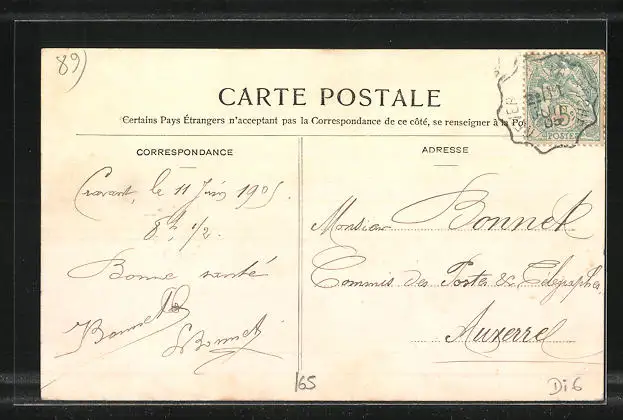 89)
CARTE POSTALE
Certains Pays Étrangers n'acceptant pas la Correspondance de ce côté, se renseigner à la Po
CORRESPONDANCE
ADRESSE
Cravant, le 11 Juin 1905.
8h 1/2.
Bonne santé
Bonnet
Bonnet
Monsieur Bonnet
Commis des Postes & Télégraphes,
Auxerre
5c
POSTES
165
Di 6